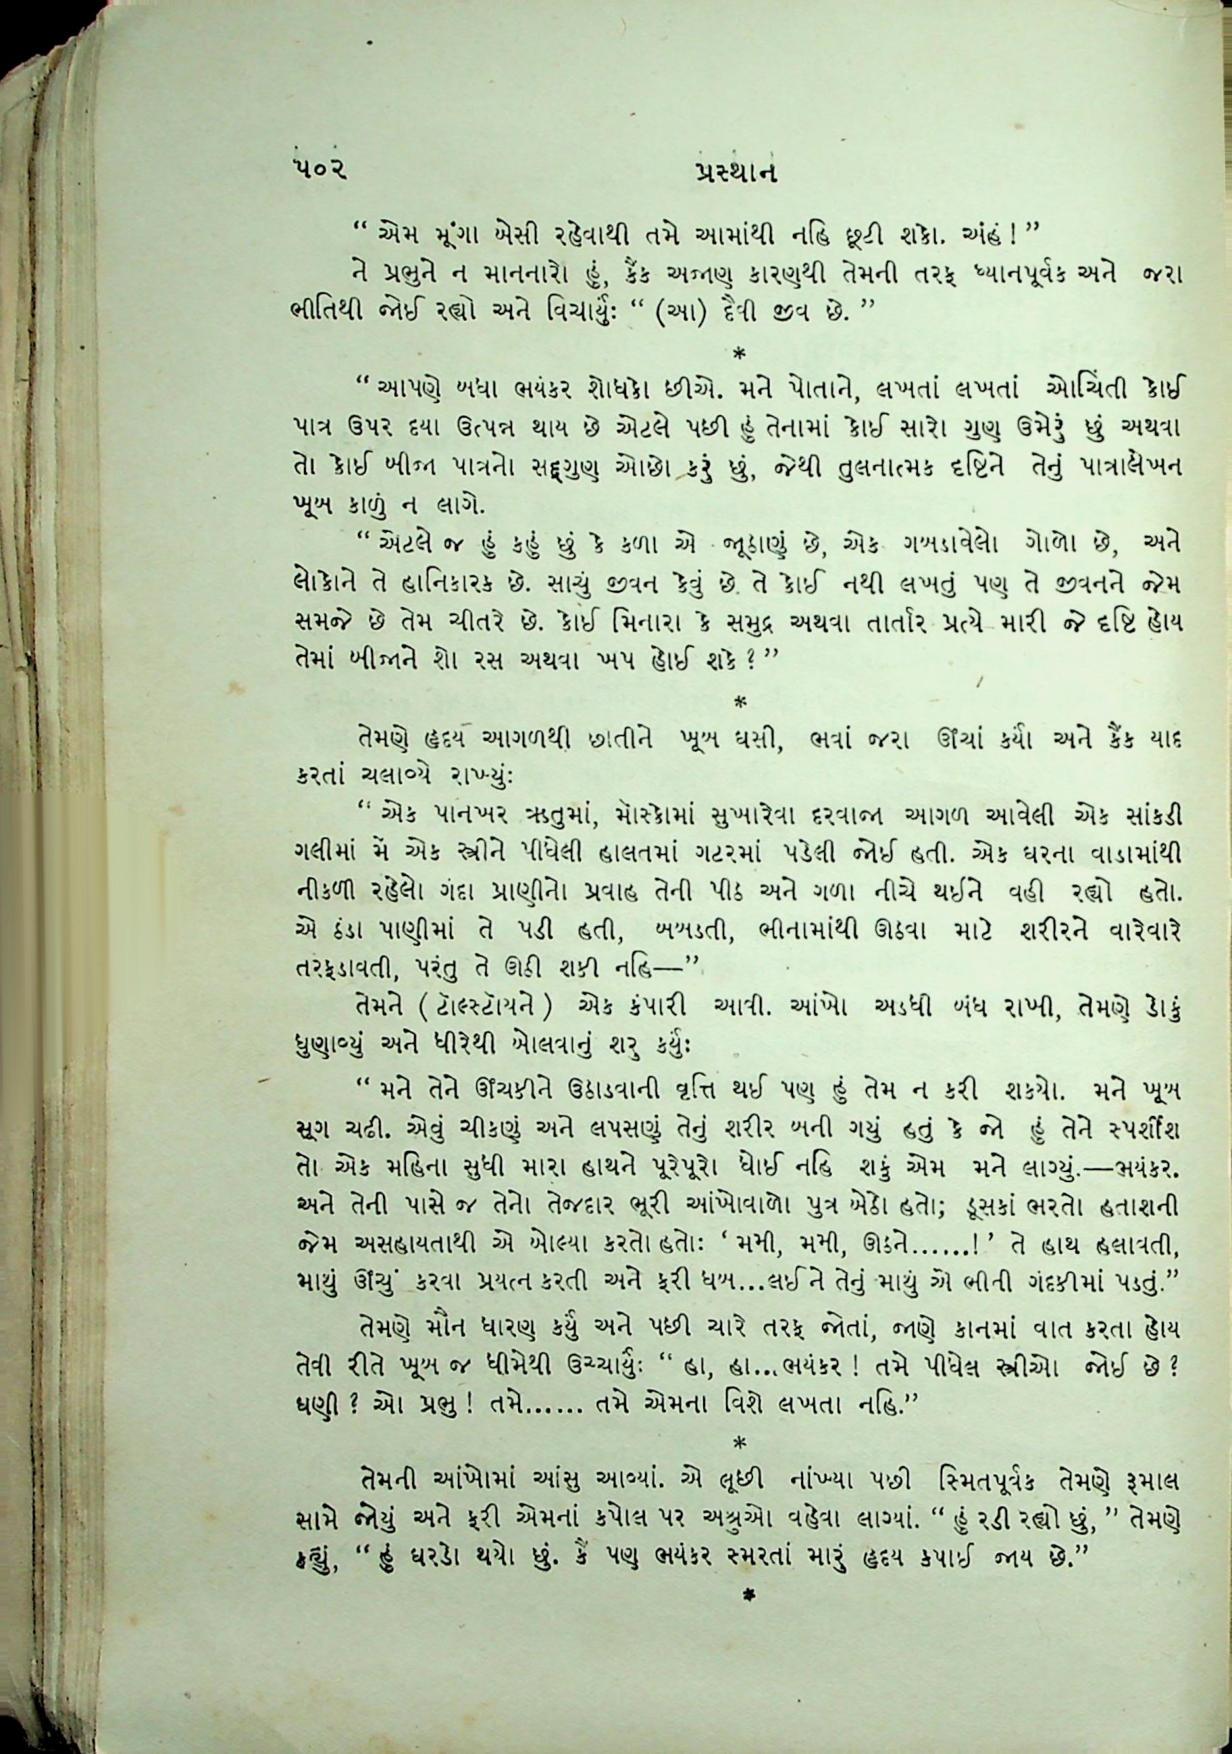 ૫૦૨ પ્રસ્થાન
“ એમ મૂંગા બેસી રહેવાથી તમે આમાંથી નહિ છૂટી શકો. અંહં ! ”
ને પ્રભુને ન માનનારો હું, કૈંક અજાણ કારણથી તેમની તરફ ધ્યાનપૂર્વક અને જરા
ભીતિથી જોઈ રહ્યો અને વિચાર્યું: “ (આ) દૈવી જીવ છે. ”
*
“ આપણે બધા ભયંકર શોધકો છીએ. મને પોતાને, લખતાં લખતાં ઓચિંતી કોઈ
પાત્ર ઉપર દયા ઉત્પન્ન થાય છે એટલે પછી હું તેનામાં કોઈ સારો ગુણ ઉમેરું છું અથવા
તો કોઈ બીજા પાત્રનો સદ્દગુણ ઓછો કરું છું, જેથી તુલનાત્મક દૃષ્ટિને તેનું પાત્રાલેખન
ખૂબ કાળું ન લાગે.
“ એટલે જ હું કહું છું કે કળા એ જૂઠાણું છે, એક ગબડાવેલો ગોળો છે, અને
લોકોને તે હાનિકારક છે. સાચું જીવન કેવું છે તે કોઈ નથી લખતું પણ તે જીવનને જેમ
સમજે છે તેમ ચીતરે છે. કોઈ મિનારા કે સમુદ્ર અથવા તાર્તાર પ્રત્યે મારી જે દૃષ્ટિ હોય
તેમાં બીજાને શો રસ અથવા ખપ હોઈ શકે ? ”
*
તેમણે હૃદય આગળથી છાતીને ખૂબ ઘસી, ભવાં જરા ઊંચાં કર્યાં અને કૈંક યાદ
કરતાં ચલાવ્યે રાખ્યું:
“ એક પાનખર ઋતુમાં, મૉસ્કોમાં સુખારેવા દરવાજા આગળ આવેલી એક સાંકડી
ગલીમાં મેં એક સ્ત્રીને પીધેલી હાલતમાં ગટરમાં પડેલી જોઈ હતી. એક ઘરના વાડામાંથી
નીકળી રહેલો ગંદા પ્રાણીનો પ્રવાહ તેની પીઠ અને ગળા નીચે થઈને વહી રહ્યો હતો.
એ ઠંડા પાણીમાં તે પડી હતી, બબડતી, ભીનામાંથી ઊઠવા માટે શરીરને વારેવારે
તરફડાવતી, પરંતુ તે ઊઠી શકી નહિ—”
તેમને ( ટૉલ્સ્ટૉયને ) એક કંપારી આવી. આંખો અડધી બંધ રાખી, તેમણે ડોકું
ધુણાવ્યું અને ધીરેથી બોલવાનું શરુ કર્યું:
“ મને તેને ઊંચકીને ઉઠાડવાની વૃત્તિ થઈ પણ હું તેમ ન કરી શક્યો. મને ખૂબ
સૂગ ચઢી. એવું ચીકણું અને લપસણું તેનું શરીર બની ગયું હતું કે જો હું તેને સ્પર્શીશ
તો એક મહિના સુધી મારા હાથને પૂરેપૂરો ધોઈ નહિ શકું એમ મને લાગ્યું.—ભયંકર.
અને તેની પાસે જ તેનો તેજદાર ભૂરી આંખોવાળો પુત્ર બેઠો હતો; ડૂસકાં ભરતો હતાશની
જેમ અસહાયતાથી એ બોલ્યા કરતો હતો: ‘ મમી, મમી, ઊઠને......! ’ તે હાથ હલાવતી,
માથું ઊંચું કરવા પ્રયત્ન કરતી અને ફરી ધબ...લઈ ને તેનું માથું એ ભીની ગંદકીમાં પડતું.”
તેમણે મૌન ધારણ કર્યું અને પછી ચારે તરફ જોતાં, જાણે કાનમાં વાત કરતા હોય
તેવી રીતે ખૂબ જ ધીમેથી ઉચ્ચાર્યું: “ હા, હા...ભયંકર ! તમે પીધેલ સ્ત્રીઓ જોઈ છે ?
ઘણી ? ઓ પ્રભુ ! તમે...... તમે એમના વિશે લખતા નહિ.”
*
તેમની આંખોમાં આંસુ આવ્યાં. એ લૂછી નાંખ્યા પછી સ્મિતપૂર્વક તેમણે રૂમાલ
સામે જોયું અને ફરી એમનાં કપોલ પર અશ્રુઓ વહેવા લાગ્યાં. “ હું રડી રહ્યો છું, ” તેમણે
કહ્યું, “ હું ઘરડો થયો છું. કૈં પણ ભયંકર સ્મરતાં મારું હૃદય કપાઈ જાય છે.”
*